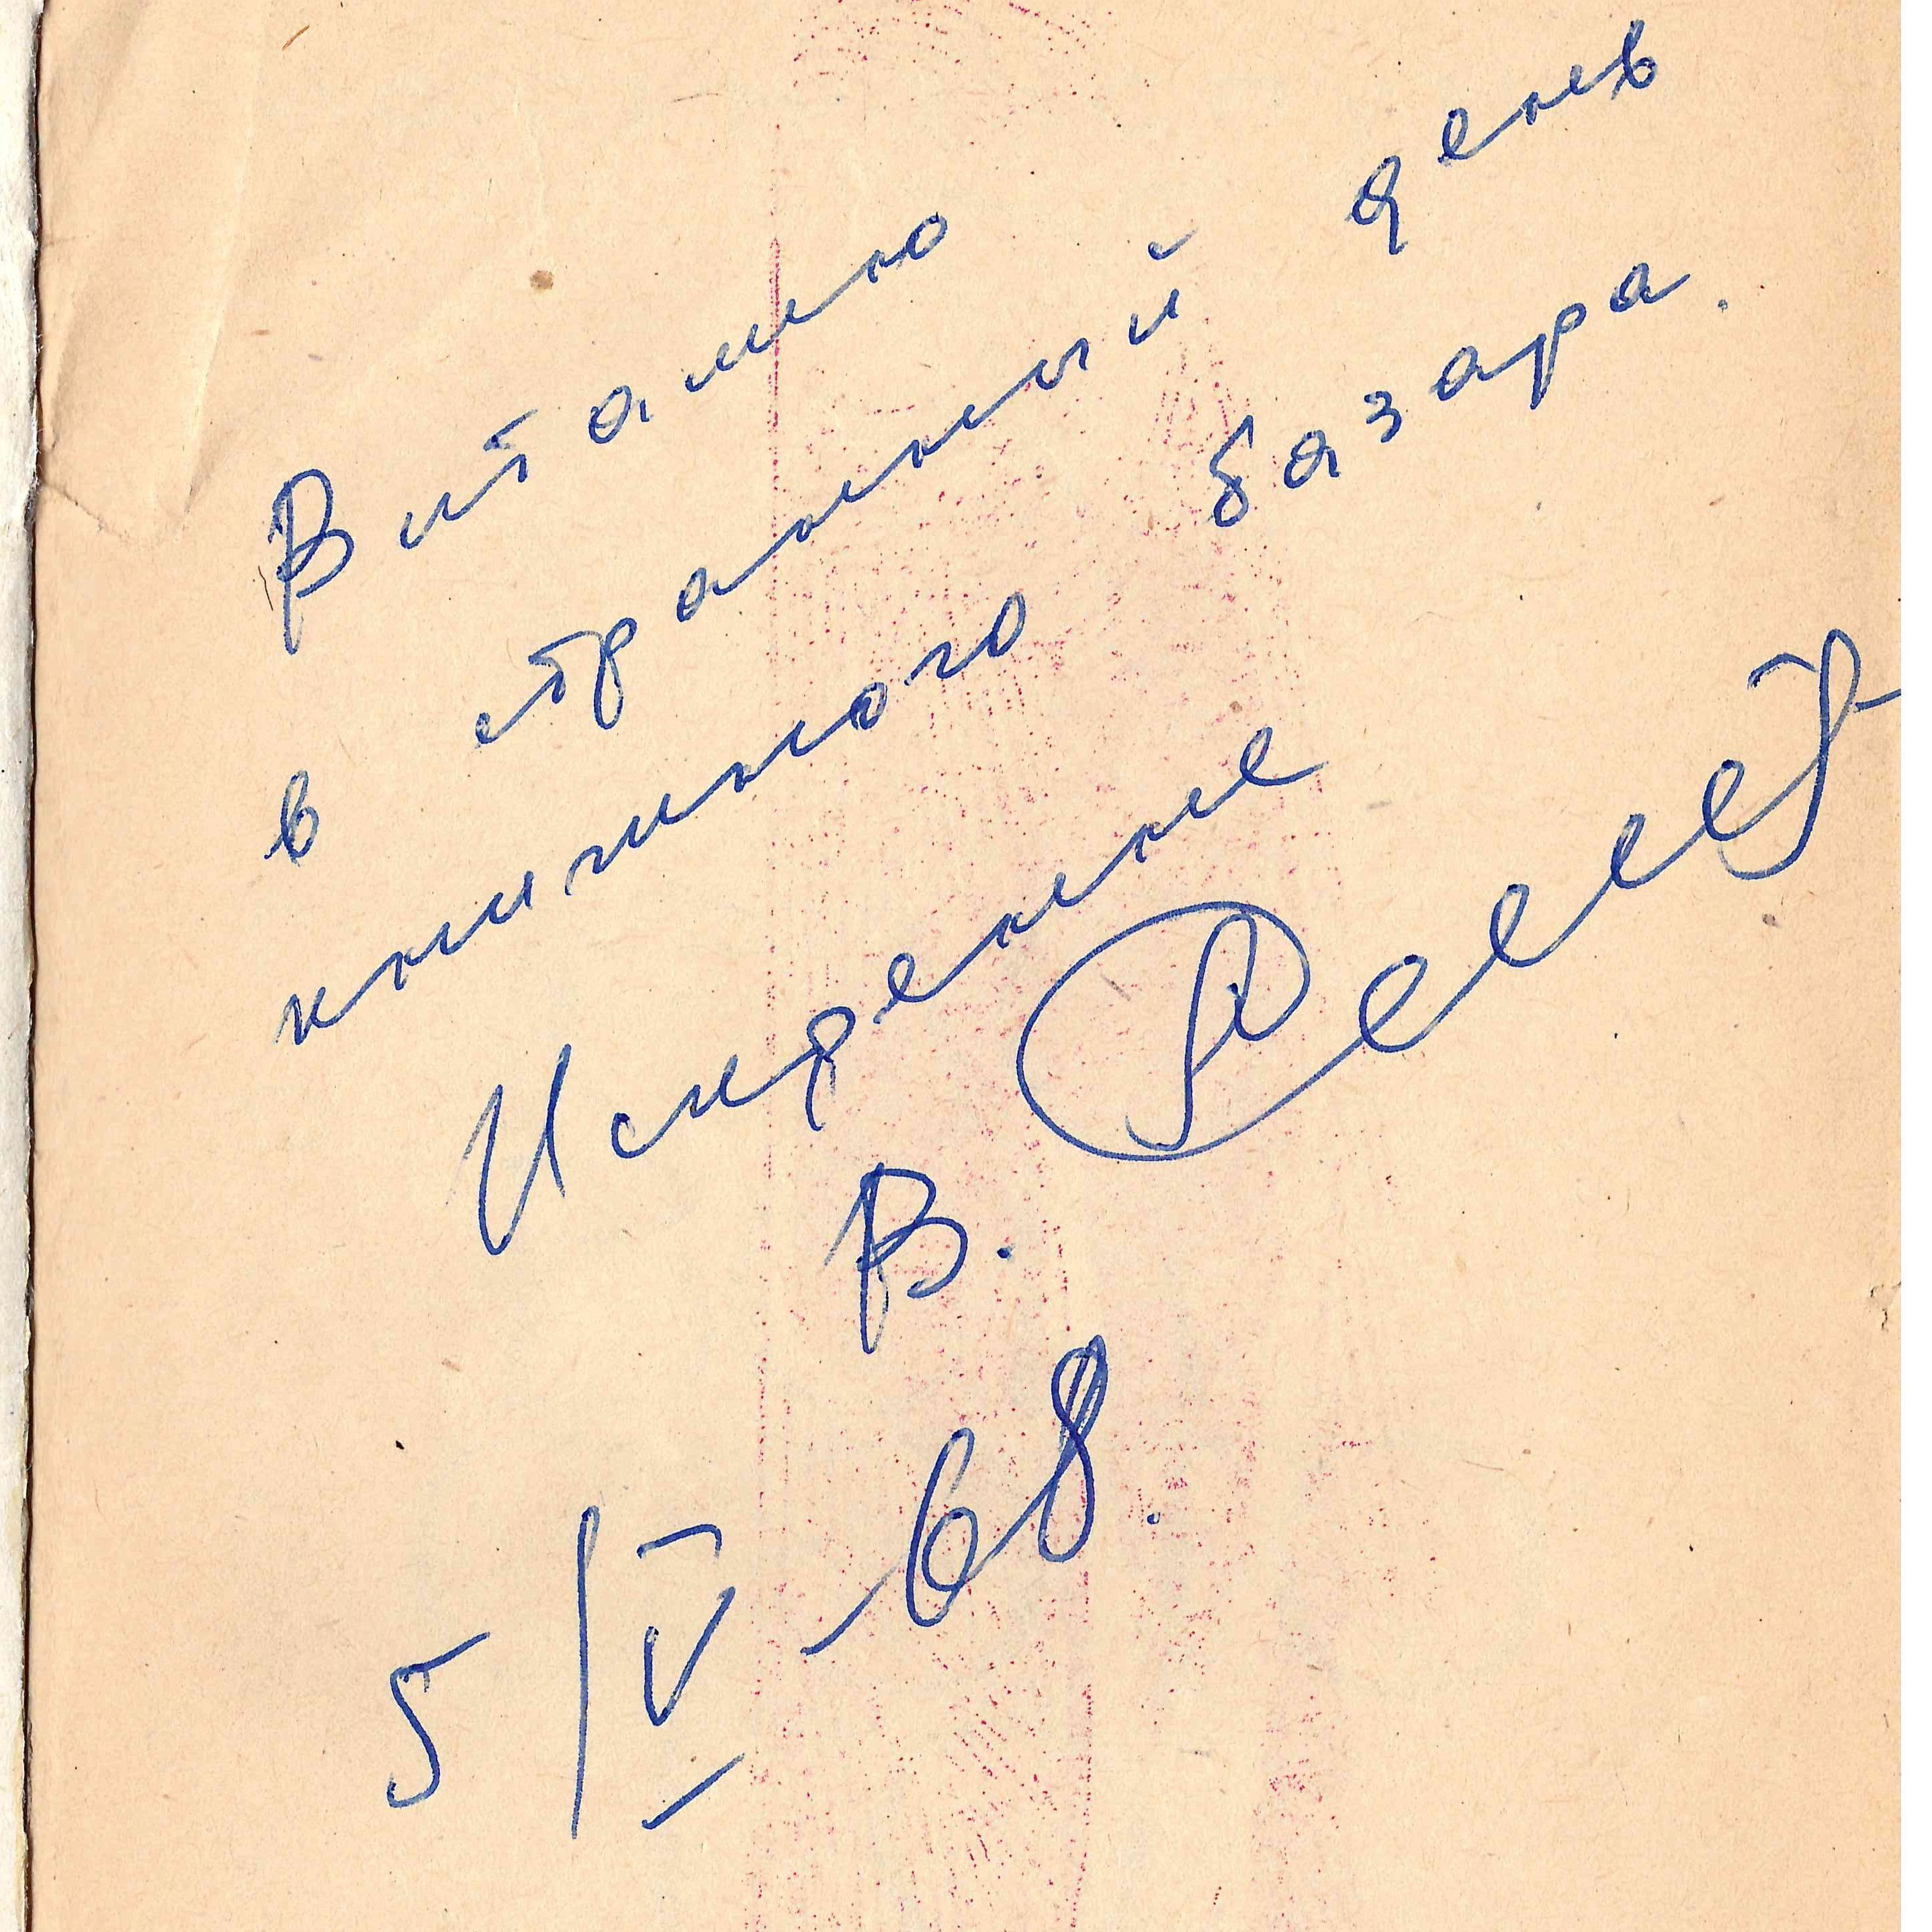 Виталию
в странный день
книжного базара.
Искренне
В.
5/V-68.